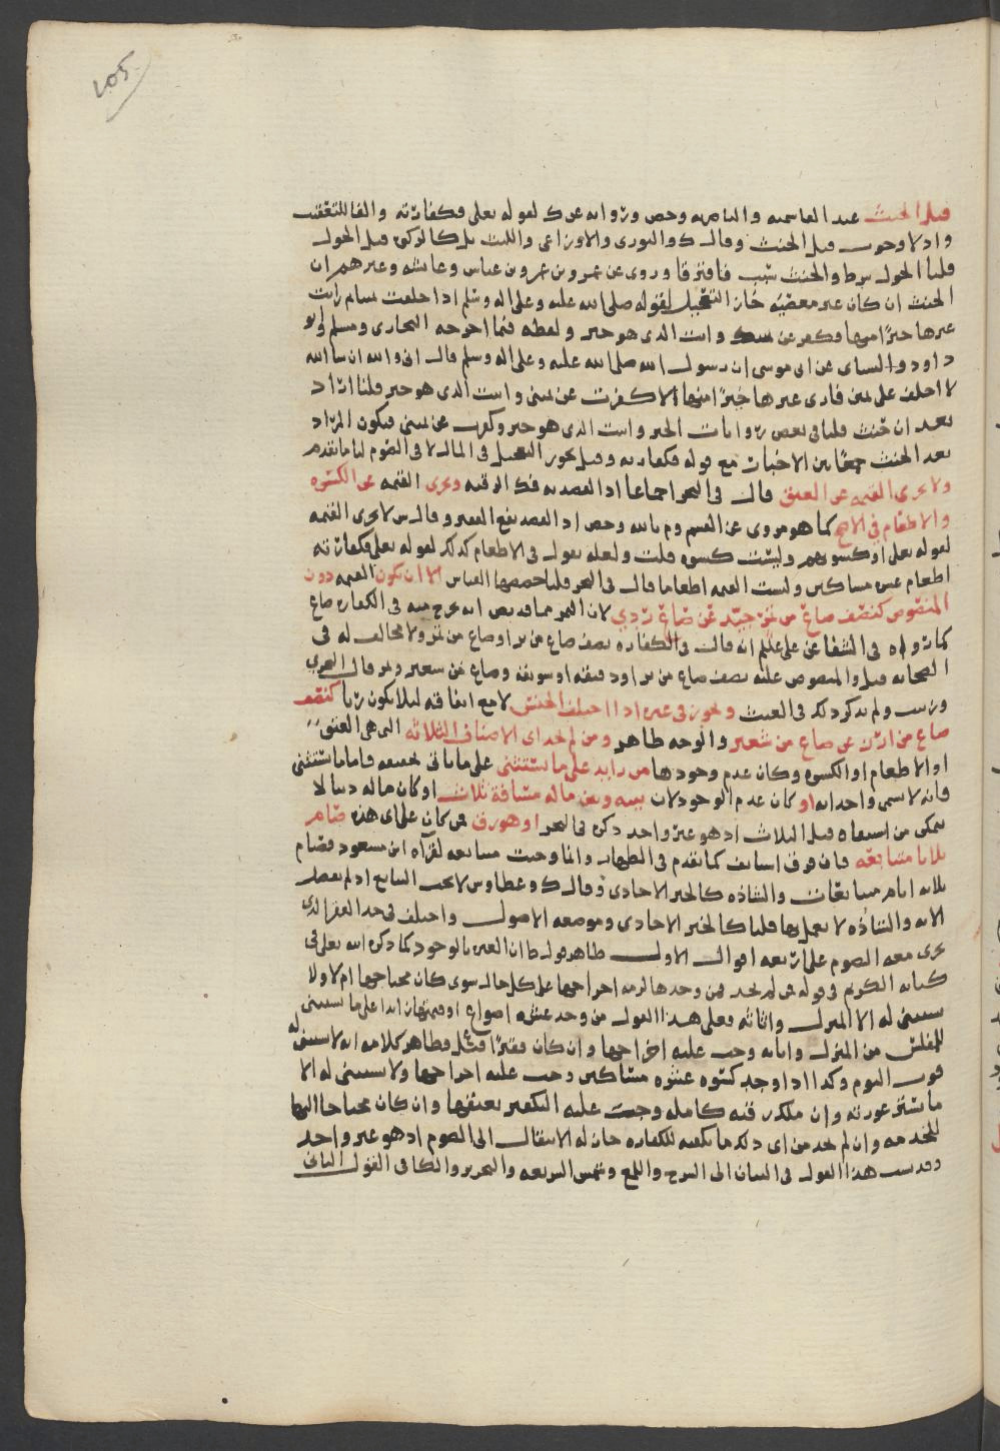 ٢٠٥
قبل الحنث عند القاسميه والناصريه وحص ورواىه عن ك لقوله تعالى فكفارته والفا للتعقيب
واذ لا وجوب قبل الحنث وقال ك والثورى والاوزاعى والليث بل كالزكوه قبل الحول
قلنا الحول شرط والحنث سبب فافترقا وروى عن عمر وبن عمر وبن عباس وعائشه وغيرهم ان
الحنث ان كان غير معصيه جاز التعجيل لقوله صلى الله عليه وعلى اله وسلم اذا حلفت فرايت
غيرها خيرًا منها فكفر عن وائت الذى هو خير ولفظه فيما اخرجه البخارى ومسلم وابو
داود والنساى عن ابى موسى ان رسول الله صلى الله عليه وعلى اله وسلم قال انى والله ان شا الله
لا احلف على يمين فارى غيرها خيرًا منها الا كفرت عن يمينى وائت الذى هو خير قلنا اراد
بعد ان حنث قلنا فى بعض روايات الخبر وائت الذى هو خير وكفرت عن يمينى فيكون المراد
بعد الحنث جمعًا بين الاخبار مع قوله فكفارته وقيل يجوز التعجيل فى المال لا فى الصوم لنا ما تقدم
ولا تجزى القيمه عن العتق قال فى البحر اجماعا اذ القصد به فك الرقبه وتجزى القيمه عن الكسوه
والاطعام في الاصح كما هو مروى عن القسم وم بالله وحص اذ القصد نفع الفقير وقال س لا تجزى القيمه
لقوله تعالى او كسوتهم وليست كسوه قلت ولعله يقول فى الاطعام كذلك لقوله تعالى فكفارته
اطعام عشره مساكين وليست القيمه اطعاما قال فى البحر قلنا خصصها القياس الا ان تكون القيمه دون
المنصوص كنصف صاع من تمر جيّد عن صاع ردي لان التمر مما قد نص انه يخرج منه فى الكفاره صاع
كما رواه فى الشفا عن على علم انه قال فى الكفاره نصف صاع من بر او صاع من تمر ولا مخالف له فى
الصحابه قيل والمنصوص عليه نصف صاع من بر او دقيقه او سويقه وصاع من شعير وتمر قال
وزبيب ولم يذكر ذلك فى الغيث وتجوز فى غيره اذا اختلف الجنس لا مع اتفاقه ليلا يكون ربا كنصف
صاع من ارز عن صاع من شعير والوجه ظاهر ومن لم يجد اى الاصناف الثلاثه التى هى العتق
او الاطعام او الكسوه وكان عدم وجودها من زايد على ما يستثنى على ما ياتى تحقيقه فاما ما يستثنى
فانه لا يسمى واجدا به او كان عدم الوجود لان بينه وبين ماله مسافة ثلاث او كان ماله دينا لا
يتمكن من استيفاه قبل الثلاث اذ هو غير واجد ذكره فى البحر او هو رق من كان على اى هذه صام
ثلاثا متتابعه فان فرق استانف كما تقدم فى الظهار وانما وجبت متتابعه لقرآه ابن مسعود فصيام
ثلاثه ايام متتابعات والشاذه كالخبر الاحادى وقال ك وعطا وس لا يجب التتابع اذ لم تفصل
الايه والشاذه لا يعمل بها قلنا كالخبر الاحادى وموضعه الاصول واختلف فى حد الفقر الذى
يجزى معه الصوم على اربعه اقوال الاول ظاهر قول ط ان العبره بالوجود كما ذكره الله تعالى فى
كتابه الكريم فى قوله من لم يجد فمن وجدها لزمه اخراجها على كل حال سوى كان محتاجها ام لا ولا
يستثنى له الا المنزل واثاثه فعلى هذا القول من وجد عشره اصواع او قيمتها ما يستثنى
للمفلس من المنزل واثاثه وجب عليه اخراجها وان كان فقيرًا فظاهر كلامه انه لا يستثنى له
قوت اليوم وكذا اذا وجد كسوه عشره مساكين وجب عليه اخراجها ولا يستثنى له الا
ما يستر عورته وان ملك رقبه كامله وجبت عليه التكفير بعتقها وان كان محتاجا اليها
للخدمه وان لم يجد من اى ذلك ما يكفيه للكفاره جاز له الانتقال الى الصوم اذ هو غير واجد
وقد نسب هذا القول فى البيان الى الشرح واللمع وشمس الشريعه والتحرير والكافى القول الثانى